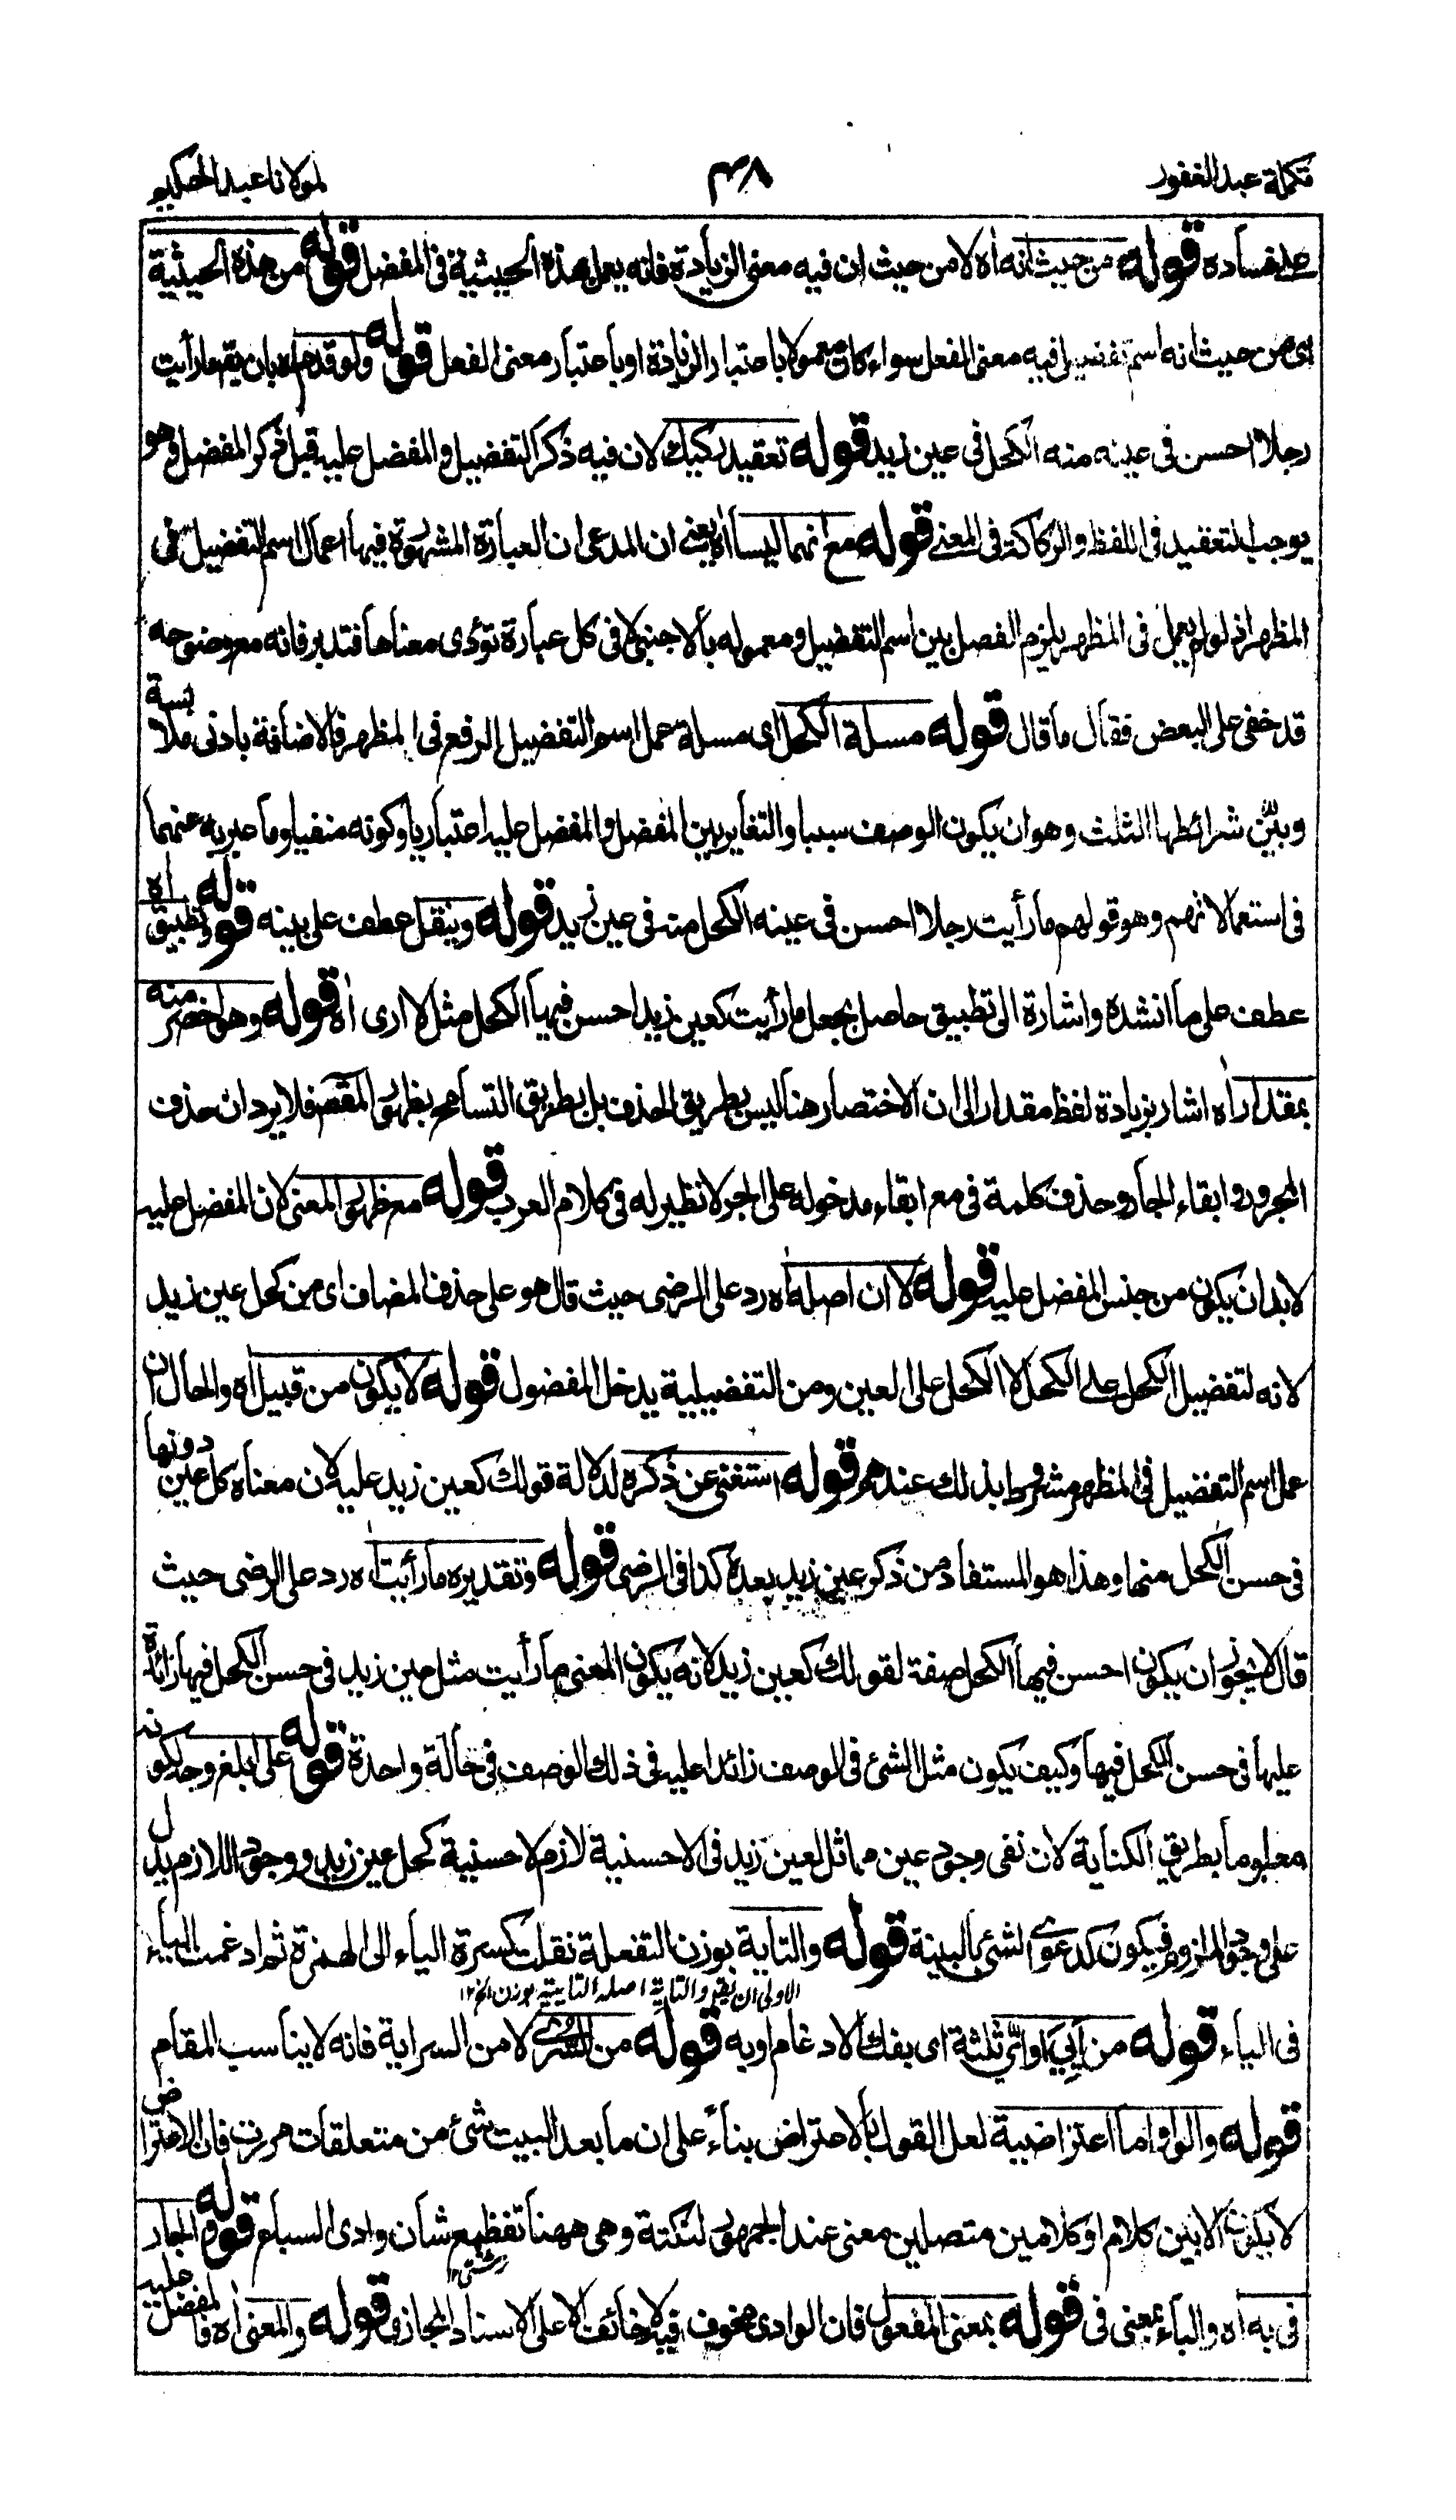 تكملة عبد الغفور
٣٨
لمولانا عبد الحكيم
على فساده قوله من حيث انه اه لا من حيث ان فيه معنى الزيادة فانه يعمل بهذه الحيثية فى المفضل قوله من هذه الحيثية
اى من حيث انه اسم تفضيل فيه معنى الفعل سواء كان معمولا باعتبار الزيادة او باعتبار معنى الفعل قوله ولو قدم اه بان يقم ما رأيت
رجلا احسن فى عينه منه الكحل فى عين زيد قوله تعقيد ركيك لان فيه ذكر التفضيل والمفضل عليه قبل ذكر المفضل وهو
يوجب التعقيد فى اللفظ والركاكة فى المعنى قوله مع انهما ليسا اه يعنى ان المدعى ان العبارة المشهورة فيها اعمال اسم التفضيل فى
المظهر اذ لو لم يعمل فى المظهر يلزم الفصل بين اسم التفضيل ومعموله بالاجنبى لا فى كل عبارة تؤدى معناها فتدبر فانه مع وضوحه
قد خفى على البعض فقال ما قال قوله مسلة الكحل اى مسلة عمل اسم التفضيل الرفع فى المظهر فالاضافة بادنى ملابسة
وبيّن شرائطها الثلث وهو ان يكون الوصف سببيا والتغاير بين المفضل والمفضل عليه اعتباريا وكونه منفيا وما عبر به عنهما
فى استعمالاتهم وهو قولهم ما رأيت رجلا احسن فى عينه الكحل منه فى عين زيد قوله وينقل عطف على بينه قوله وتطبيق اه
عطف على ما انشده واشارة الى تطبيق حاصل بجعل ما رأيت كعين زيد احسن فيها الكحل مثل لا ارى اه قوله وهو اخصر منه
بمقدار اه اشار بزيادة لفظ مقدار الى ان الاختصار هنا ليس بطريق الحذف بل بطريق التسامح بظهور المقصو فلا يرد ان حذف
المجرور وابقاء الجار وحذف كلمة فى مع ابقاء مدخوله على الجر لا نظير له فى كلام العرب قوله مع ظهور المعنى لان المفضل عليه
لا بد ان يكون من جنس المفضل عليه قوله لا ان اصله اه رد على الرضى حيث قال هو على حذف المضاف اى من كحل عين زيد
لانه لتفضيل الكحل على الكحل لا الكحل على العين ومن التفضيلية يدخل المفضول قوله لا يكون من قبيل اه والحال ان
عمل اسم التفضيل فى المظهر مشروط بذلك عندهم قوله استغنى عن ذكره لدلالة قولك كعين زيد عليه لان معناه كل عين دونها
فى حسن الكحل منها وهذا هو المستفاد من ذكر عين زيد بعده كذا فى الرضى قوله وتقديره ما رأيت اه رد على الرضى حيث
قال لا يجوز ان يكون احسن فيها الكحل صفة لقولك كعين زيد لانه يكون المعنى ما رأيت مثل عين زيد فى حسن الكحل فيها زائدة
عليها فى حسن الكحل فيها وكيف يكون مثل الشئ فى الوصف زائدا عليه فى ذلك الوصف فى حالة واحدة قوله على ابلغ وجه لكونه
معلوما بطريق الكناية لان نفى وجود عين مماثل لعين زيد فى الاحسنية لازم لاحسنية كحل عين زيد ووجود اللازم يدل
على وجود الملزوم فيكون كدعوى الشئ بالبينة قوله والتاية بوزن التفعلة نقلت كسرة الياء الى الهمزة ثم ادغمت الياء
الاولى ان يقم والتاية اصله التايية بوزن الخ ١٢
فى الياء قوله من اَيِىَ او اىّ ثلثة اى بفك الادغام او به قوله من السُّرى لا من السراية فانه لا يناسب المقام
قوله والواو اما اعتراضية لعل القول بالاعتراض بناءً على ان ما بعد البيت شئ من متعلقات مررت فان الاعتراض
لا يكون الا بين كلام او كلامين متصلين معنى عند الجمهور لنكتة وهى ههنا تفظيع شأن وادى السباع قوله الجار
فى به اه والباء بمعنى فى قوله بمعنى المفعول فان الوادى مخوف فيه لا خائف الا على الاسناد المجازى قوله والمعنى اه فالمفضل عليه